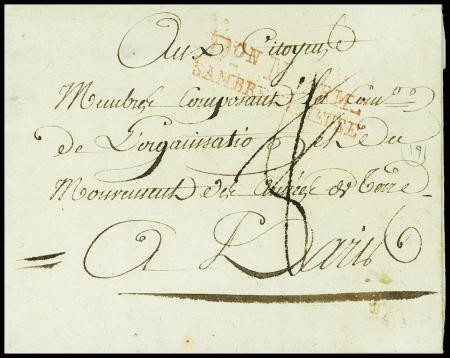 Aux Citoyens
SAMBRE
Membres Composant la com.on
de L'organisation et du
Mouvement des armées de Terre
191
A Paris